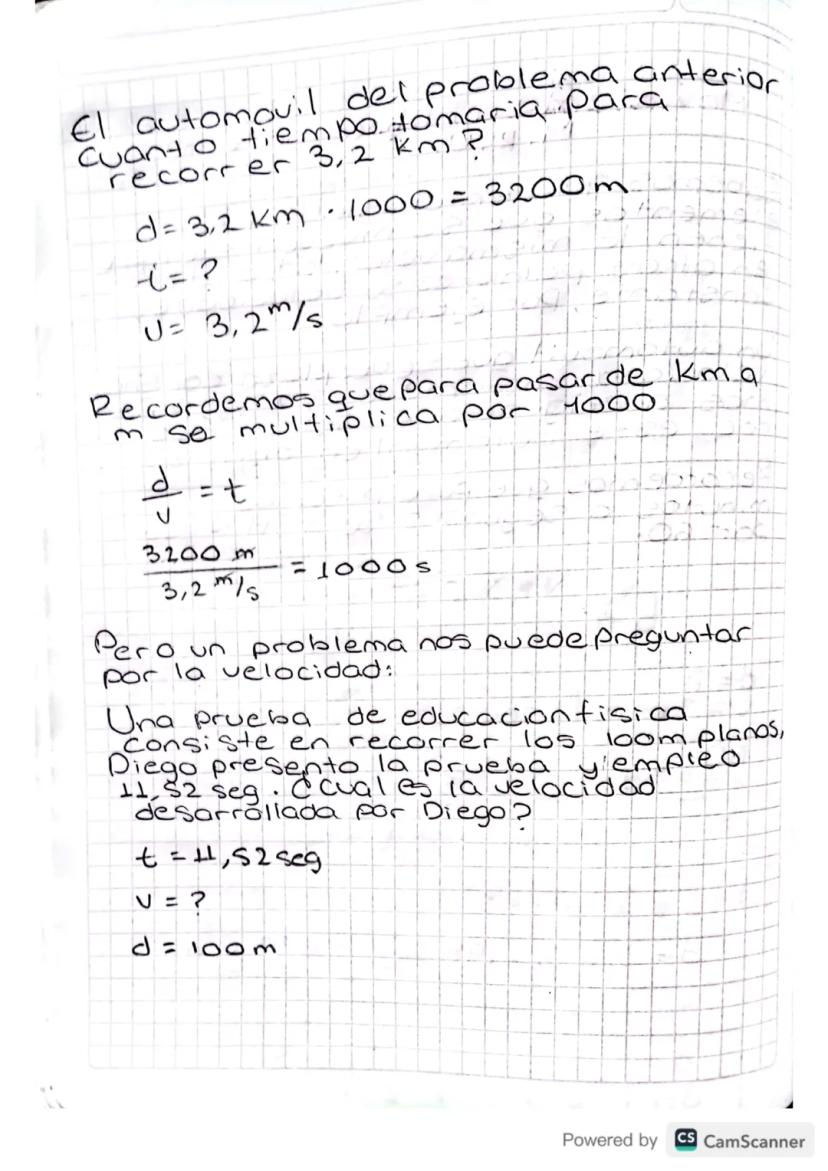 El automovil del problema anterior
cuanto tiempo tomaria para
recorrer 3,2 km?
d = 3,2 km . 1000 = 3200m
t = ?
v = 3,2 m/s
Recordemos que para pasar de km a
m se multiplica por 1000
d/v = t
3200 m / 3,2 m/s = 1000 s
Pero un problema nos puede preguntar
por la velocidad:
Una prueba de educacion fisica
consiste en recorrer los 100m planos,
Diego presento la prueba y empleo
11,52 seg. ¿cual es la velocidad
desarrollada por Diego?
t = 11,52 seg
v = ?
d = 100 m
Powered by CS CamScanner